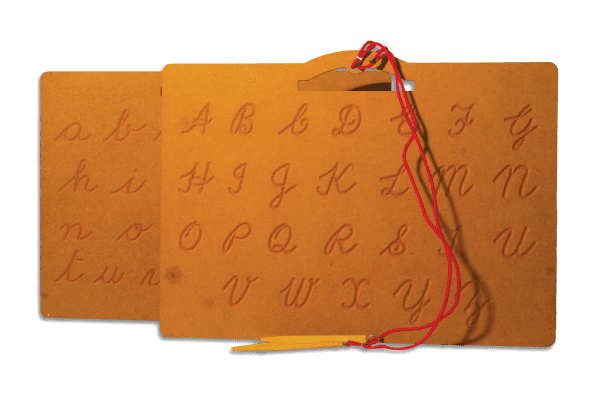 a b
h i
n o
t u
A B C D E F G
H I J K L M N
O P Q R S T U
V W X Y Z